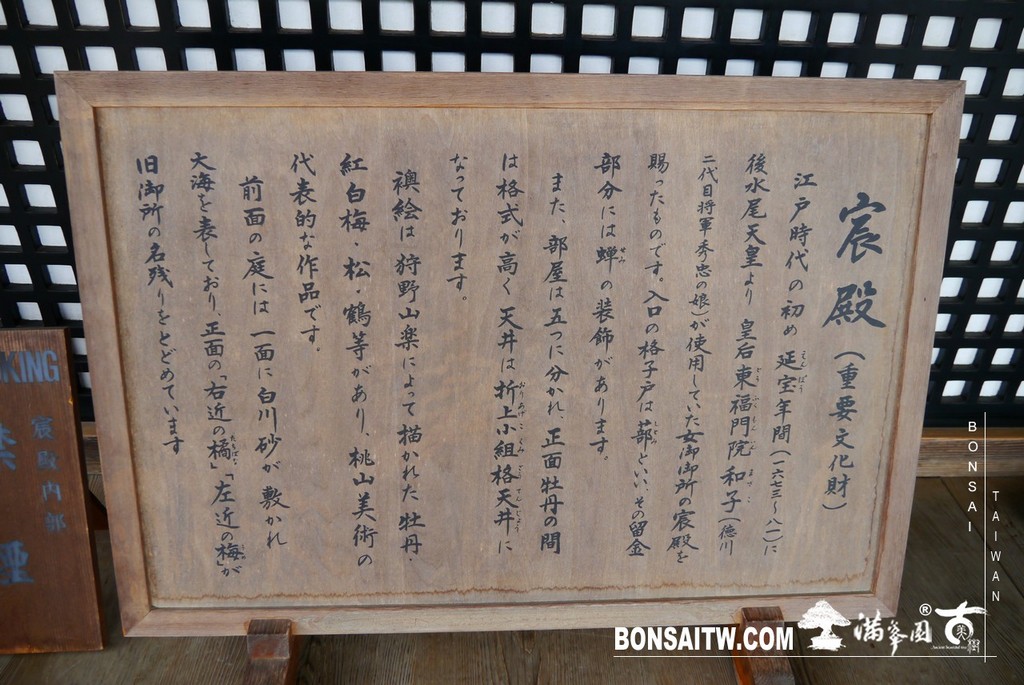 宸殿(重要文化財)
江戸時代の初め 延宝年間(一六七三〜八一)に
後水尾天皇より 皇后東福門院和子(徳川
二代目将軍秀忠の娘)が使用していた女御御所の宸殿を
賜ったものです。入口の格子戸は蔀といい、その留金
部分には蝉の装飾があります。
また、部屋は五つに分かれ、正面牡丹の間
は格式が高く天井は折上小組格天井に
なっております。
襖絵は狩野山楽によって描かれた牡丹・
紅白梅・松・鶴等があり、桃山美術の
代表的な作品です。
前面の庭には一面に白川砂が敷かれ
大海を表しており、正面の「右近の橘」「左近の梅」が
旧御所の名残りをとどめています
KING
宸殿内部
BONSAI
TAIWAN
BONSAITW.COM